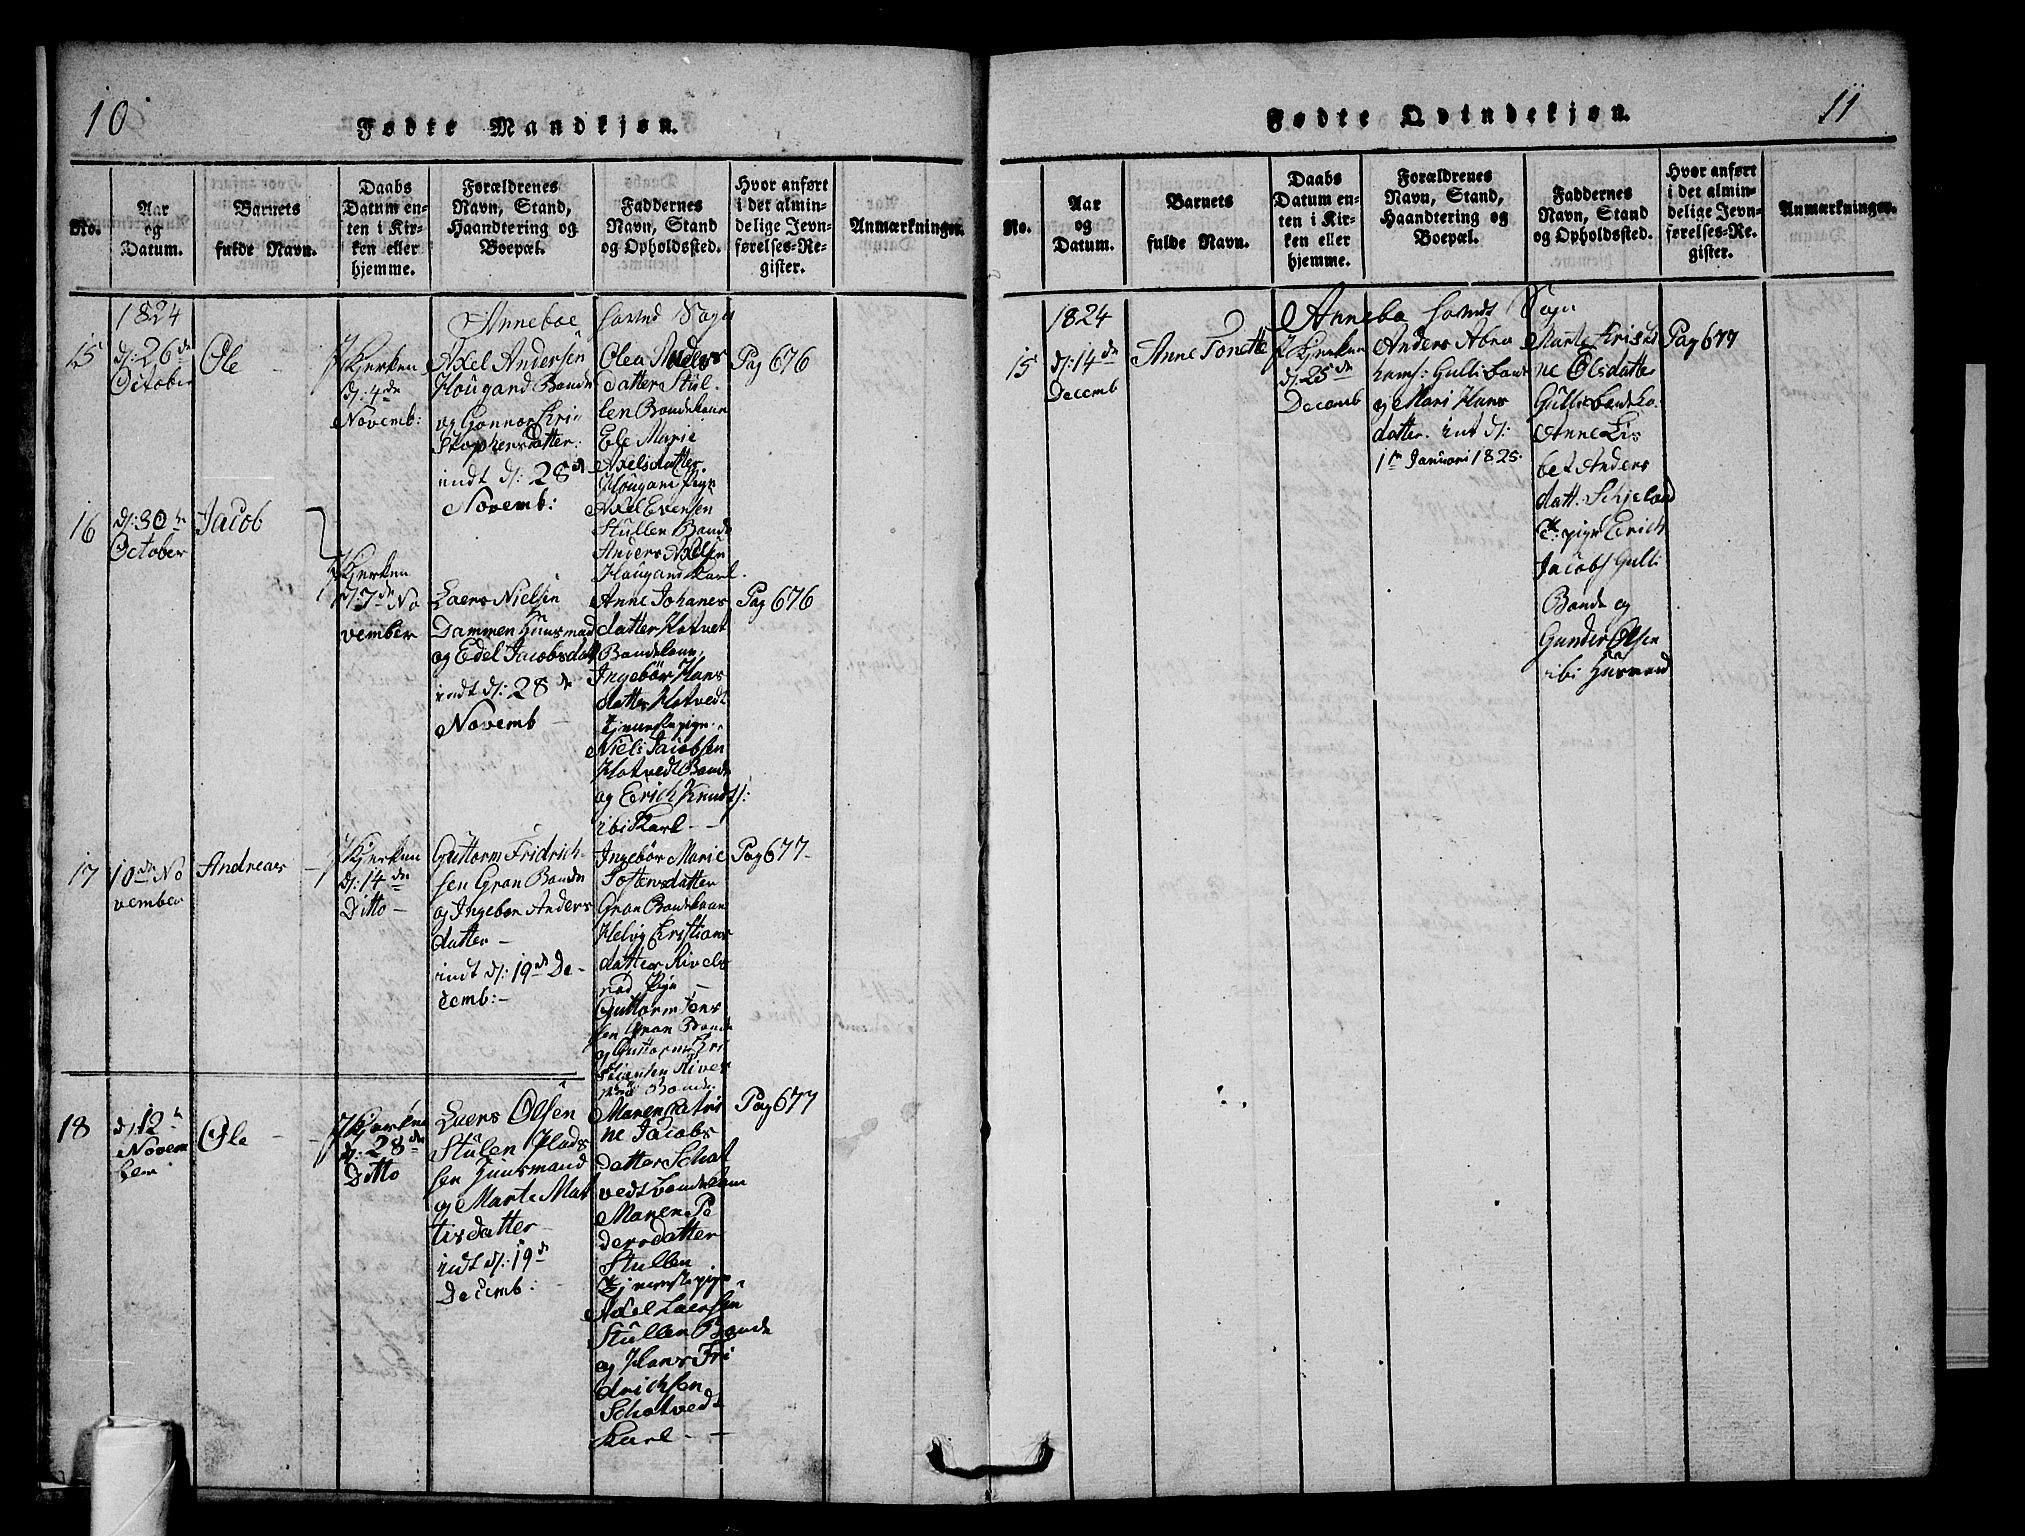 10
Fødte Mandkjøn.
No.
Aar
og
Datum.
Barnets
fulde Navn.
Daabs
Datum en-
ten i Kir-
ken eller
hjemme.
Forældrenes
Navn, Stand,
Haandtering og
Boepæl.
Faddernes
Navn, Stand
og Opholdssted.
Hvor anført
i det almin-
delige Jevn-
førelses-Re-
gister.
Anmærkninger.
1824
Anneboe
Sogn
15
d: 26de
October
Ole
Kjerken
d: 4de
Novemb:
Axel Andersen
Hougand Bonde
og Gonnor Kri
stophersdatter:
indt d: 28de
Novemb:
Olea Anders
datter Stul
len Bondekone
Ele Marie
Axelsdatter
Hougan Pige
Axel Evensen
Stullen Bonde
Anders Axelsen
Hougand Karl.
Pag 676
16
d: 30te
October
Jacob
Kjerken
d: 7de No
vember
Laers Nielsen
Dammen Huusmand
og Edel Jacobsdatt
indt d: 28de
Novemb
Anne Johanes
datter Hotvet
Bondekone,
Ingebør Hans
datter Hotvedt
Tjenestepige
Niels Jacobsen
Hotvedt Bonde
og Erich Knuds:
ibi Karl
Pag 676
17
10de No
vember
Andreas
Kjerken
d: 14de
Ditto
Guttorm Fridrich
sen Gran Bonde
og Ingebør Anders
datter
indt d: 19de De-
cemb:
Ingebør Marie
Tostensdatter
Gran Bondekone
Helvig Kristians
datter Rivels
rød Pige
Guttorm Jens
sen Gran Bonde
og Guttorm Kri
stiansen River
rød Bonde
Pag 677
18
d: 12te
Novem
ber
Ole
Kjerken
d: 28de
Ditto
Laers Olsen
Stulen Plads
sen Huusmand
og Marte Mat
tisdatter
indt d: 19de
Decemb:
Maren Katri
ne Jacobs
datter Schot
vedt Bondekone
Maren Pe
dersdatter
Stullen
Tjenestepige
Axel Laersen
Stullen Bonde
og Hans Fri
drichsen
Schotvedt
Karl
Pag 677
11
Fødte Qvindekjøn.
No.
Aar
og
Datum.
Barnets
fulde Navn.
Daabs
Datum en-
ten i Kir-
ken eller
hjemme.
Forældrenes
Navn, Stand,
Haandtering og
Boepæl.
Faddernes
Navn, Stand
og Opholdssted.
Hvor anført
i det almin-
delige Jevn-
førelses-Re-
gister.
Anmærkninger.
1824
Annebo
Sogn
15
d: 14de
Decemb
Anne Tonette
Kjerken
d: 25de
Decemb
Anders Abra
hams: Gulli Bonde
og Mari Hans
datter. indt d:
1te Januari 1825.
Marte Kristi
ne Olsdatter
Gulli Bondeko.
Anne Lis
bet Anders
datt. Schjeland
Tj. pige Erich
Jacobs Gulli
Bonde og
Gunder Olsen
ibi Husmand
Pag 677